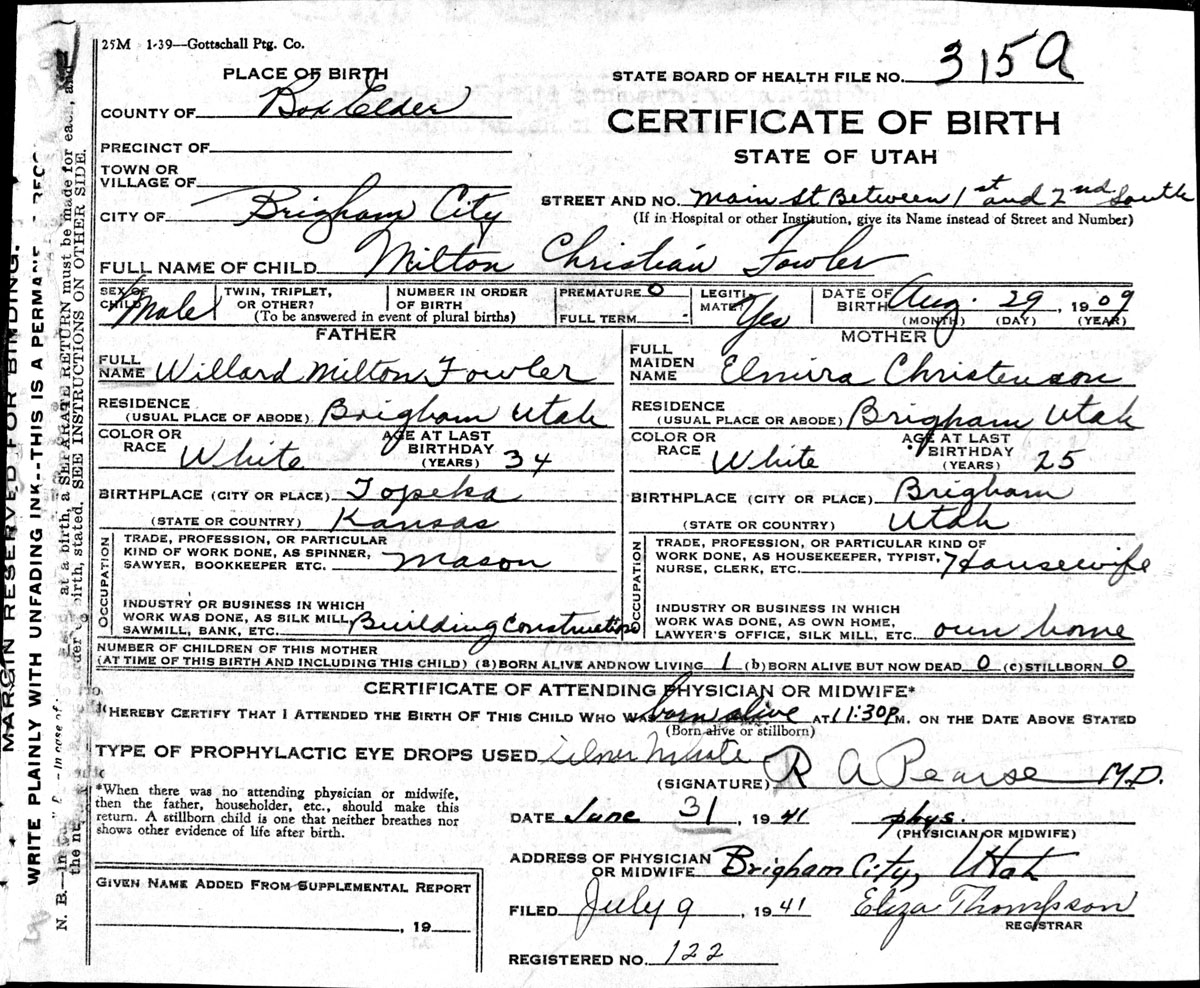 25M 1-39—Gottschall Ptg. Co.
PLACE OF BIRTH
STATE BOARD OF HEALTH FILE NO. 315a
COUNTY OF Box Elder
CERTIFICATE OF BIRTH
PRECINCT OF
STATE OF UTAH
TOWN OR
VILLAGE OF
STREET AND NO. Main St Between 1st and 2nd South
CITY OF Brigham City
(If in Hospital or other Institution, give its Name instead of Street and Number)
FULL NAME OF CHILD Milton Christian Fowler
SEX OF CHILD Male
TWIN, TRIPLET, OR OTHER?
NUMBER IN ORDER OF BIRTH
(To be answered in event of plural births)
PREMATURE 0
FULL TERM
LEGITIMATE? Yes
DATE OF BIRTH Aug. 29, 1909
(MONTH) (DAY) (YEAR)
FATHER
FULL NAME Willard Milton Fowler
RESIDENCE
(USUAL PLACE OF ABODE) Brigham Utah
COLOR OR RACE White
AGE AT LAST BIRTHDAY (YEARS) 34
BIRTHPLACE (CITY OR PLACE) Topeka
(STATE OR COUNTRY) Kansas
OCCUPATION
TRADE, PROFESSION, OR PARTICULAR
KIND OF WORK DONE, AS SPINNER,
SAWYER, BOOKKEEPER ETC. Mason
INDUSTRY OR BUSINESS IN WHICH
WORK WAS DONE, AS SILK MILL,
SAWMILL, BANK, ETC. Building Construction
MOTHER
FULL MAIDEN NAME Elmira Christenson
RESIDENCE
(USUAL PLACE OR ABODE) Brigham Utah
COLOR OR RACE White
AGE AT LAST BIRTHDAY (YEARS) 25
BIRTHPLACE (CITY OR PLACE) Brigham
(STATE OR COUNTRY) Utah
OCCUPATION
TRADE, PROFESSION, OR PARTICULAR KIND OF
WORK DONE, AS HOUSEKEEPER, TYPIST,
NURSE, CLERK, ETC. Housewife
INDUSTRY OR BUSINESS IN WHICH
WORK WAS DONE, AS OWN HOME,
LAWYER'S OFFICE, SILK MILL, ETC. own home
NUMBER OF CHILDREN OF THIS MOTHER
(AT TIME OF THIS BIRTH AND INCLUDING THIS CHILD) (a) BORN ALIVE AND NOW LIVING 1 (b) BORN ALIVE BUT NOW DEAD 0 (c) STILLBORN 0
CERTIFICATE OF ATTENDING PHYSICIAN OR MIDWIFE*
HEREBY CERTIFY THAT I ATTENDED THE BIRTH OF THIS CHILD WHO WAS born alive AT 11:30P M. ON THE DATE ABOVE STATED
(Born alive or stillborn)
TYPE OF PROPHYLACTIC EYE DROPS USED
(SIGNATURE) R A Pearse M.D.
*When there was no attending physician or midwife,
then the father, householder, etc., should make this
return. A stillborn child is one that neither breathes nor
shows other evidence of life after birth.
DATE June 31, 1941 phys.
(PHYSICIAN OR MIDWIFE)
ADDRESS OF PHYSICIAN
OR MIDWIFE Brigham City, Utah
GIVEN NAME ADDED FROM SUPPLEMENTAL REPORT
, 19
FILED July 9, 1941 Eliza Thompson
REGISTRAR
REGISTERED NO. 122
MARGIN RESERVED FOR BINDING.
WRITE PLAINLY WITH UNFADING INK--THIS IS A
N. B.—In at a birth, a SEPARATE RETURN must be made for each, and
the birth, stated. SEE INSTRUCTIONS ON OTHER SIDE.